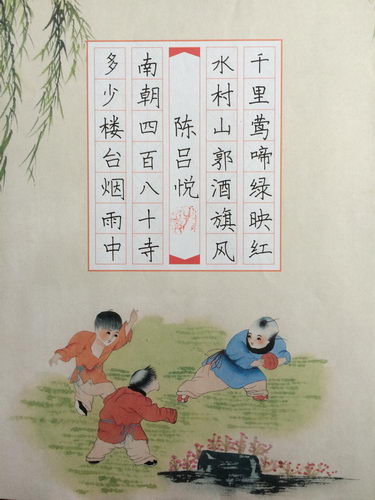 千里莺啼绿映红
水村山郭酒旗风
陈吕悦
南朝四百八十寺
多少楼台烟雨中